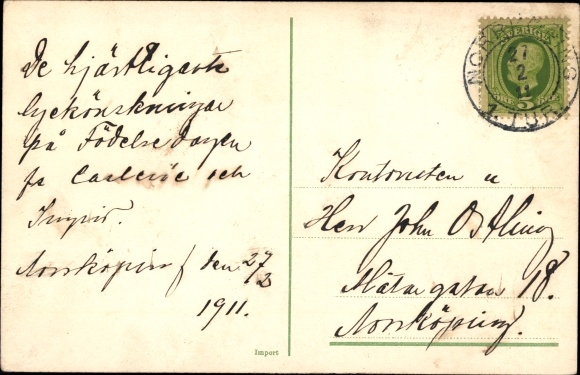 De hjärtligaste
lyckönskningar
på Födelsedagen
fr och
Ingrid.
Norrköping den 27/2
1911.
Import
SVERIGE
5
27
2
11
1. TUR
Kontoristen
Herr John Östling
gatan 18.
Norrköping.